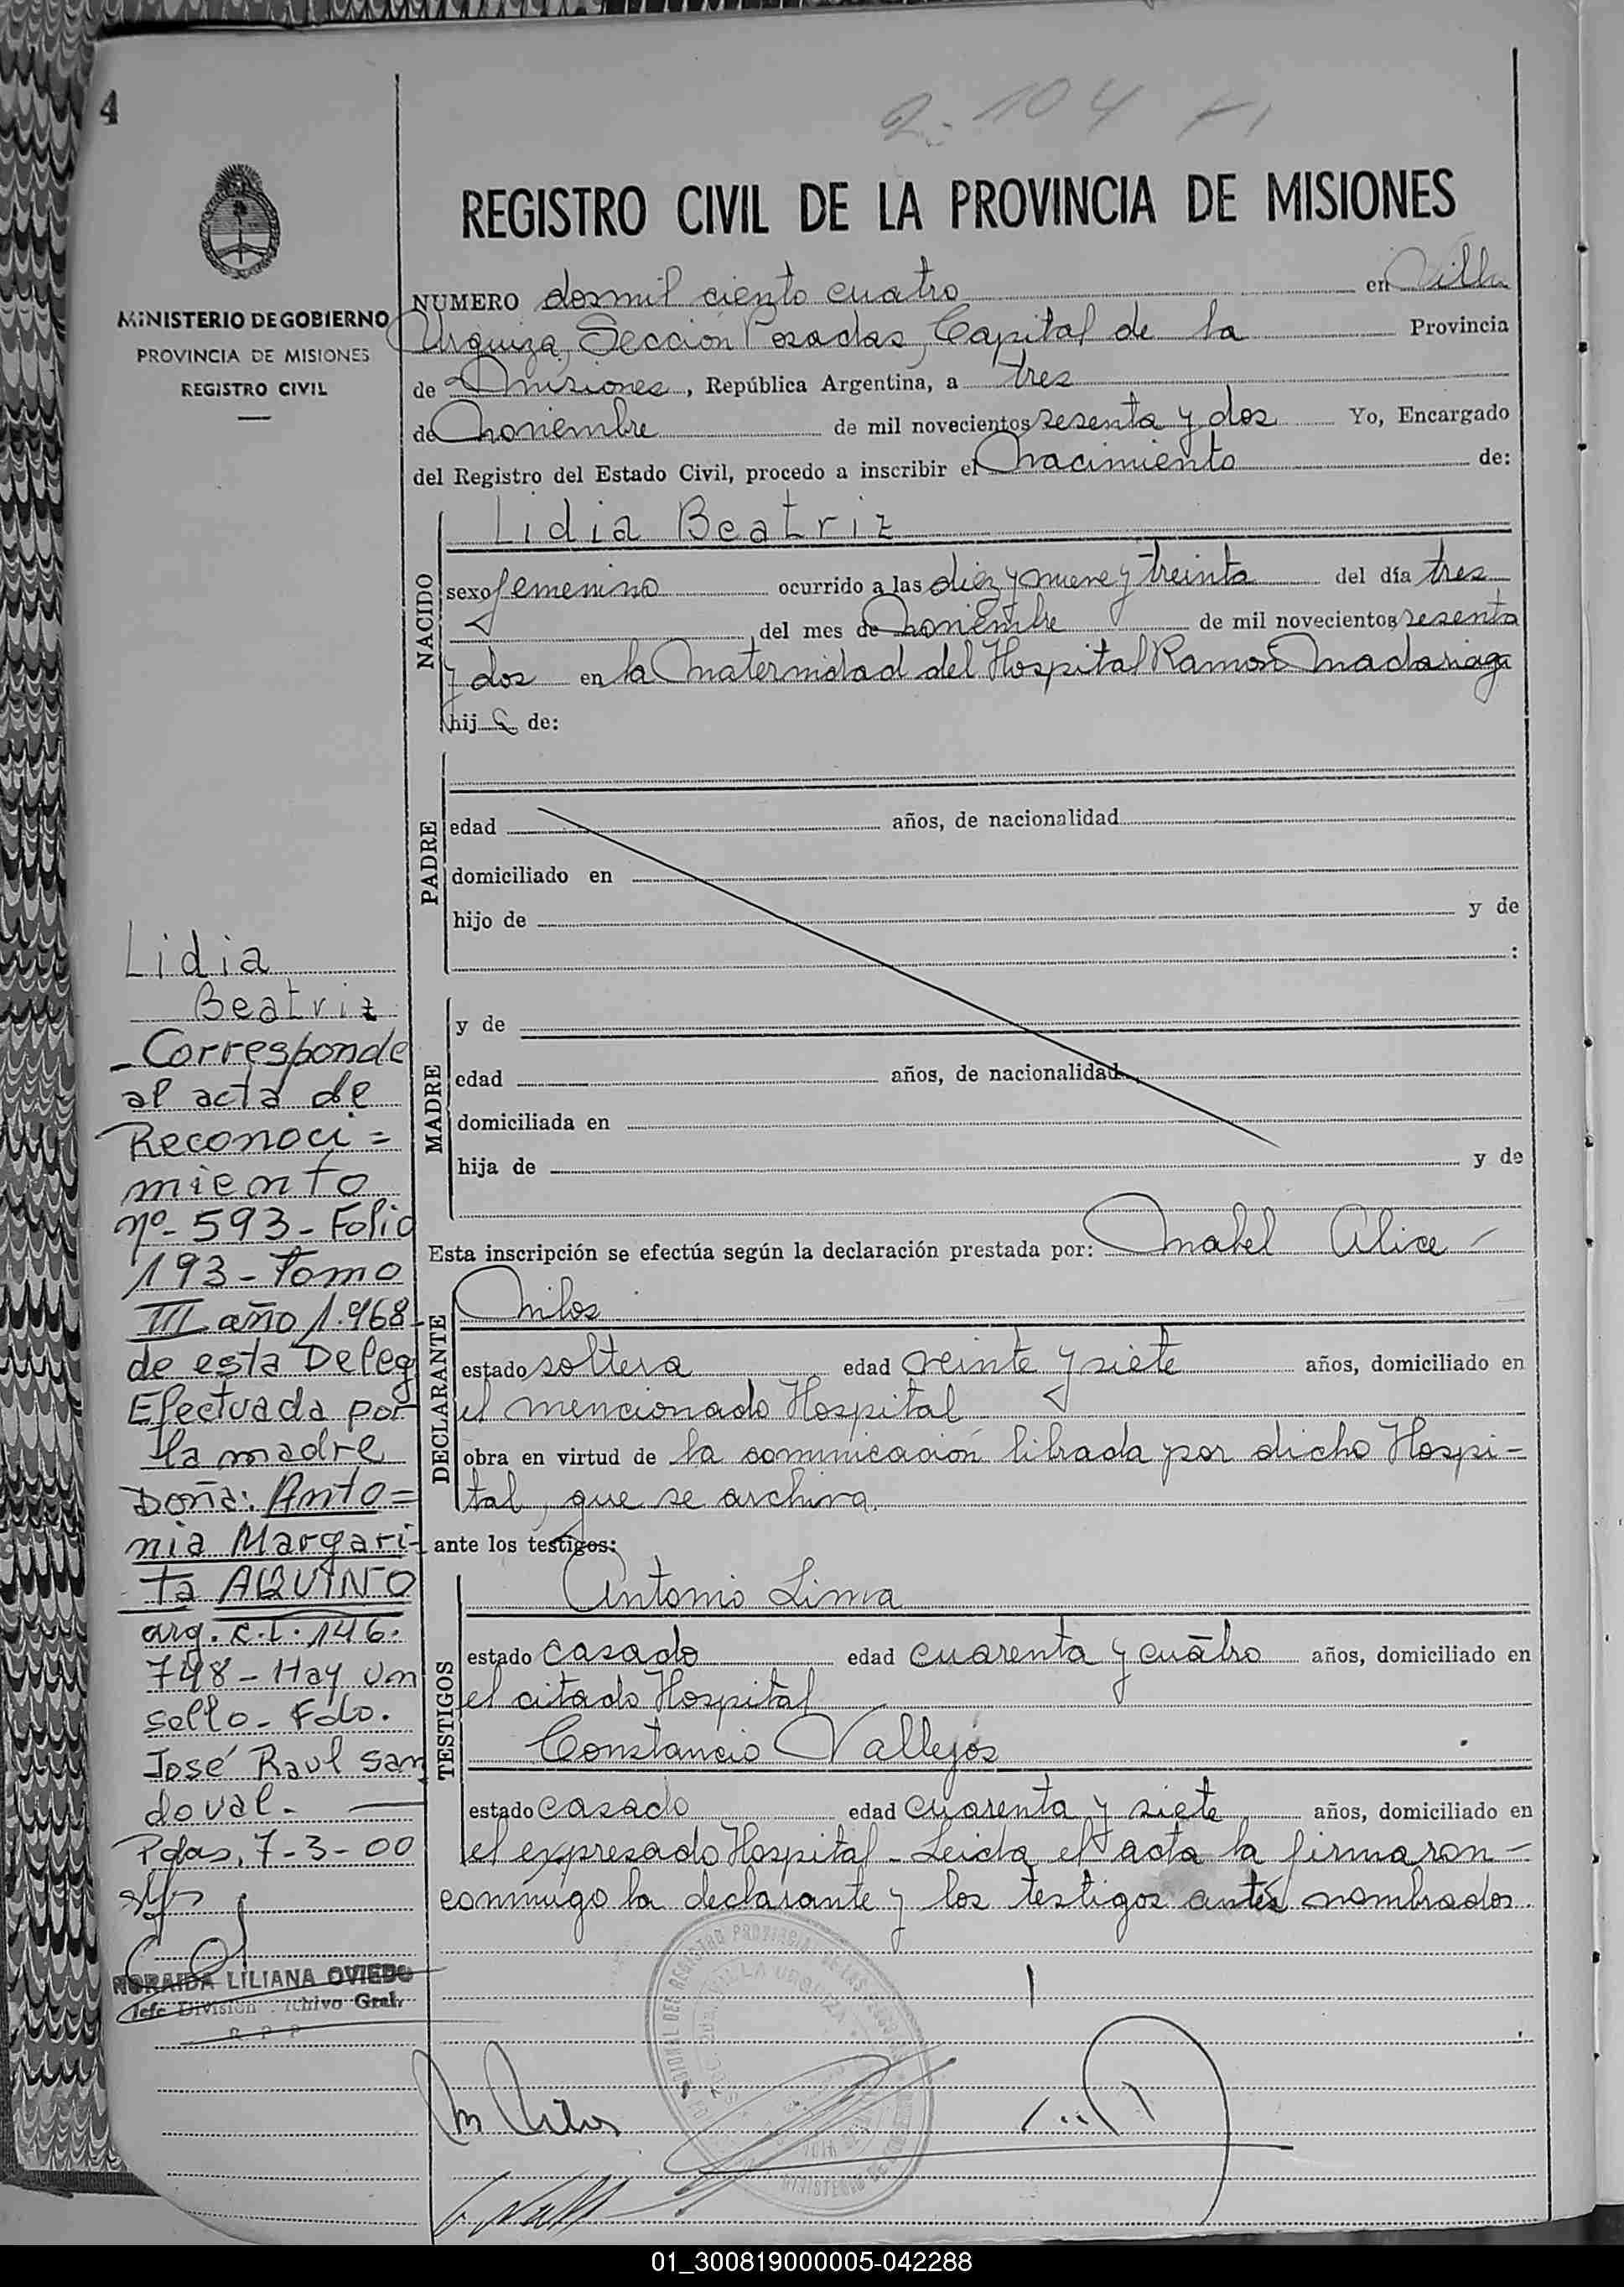 4
2-104
REGISTRO CIVIL DE LA PROVINCIA DE MISIONES
MINISTERIO DE GOBIERNO
PROVINCIA DE MISIONES
REGISTRO CIVIL
NUMERO dosmil ciento cuatro en Villa
Urquiza, Sección Posadas, Capital de la Provincia
de Misiones, República Argentina, a tres
de noviembre de mil novecientos sesenta y dos Yo, Encargado
del Registro del Estado Civil, procedo a inscribir el nacimiento de:
NACIDO
Lidia Beatriz
sexo femenino ocurrido a las diez y nueve y treinta del día tres
del mes de noviembre de mil novecientos sesenta
y dos en la Maternidad del Hospital Ramón Madariaga
hija de:
PADRE
edad años, de nacionalidad
domiciliado en
hijo de y de
:
MADRE
y de
edad años, de nacionalidad
domiciliada en
hija de y de
Esta inscripción se efectúa según la declaración prestada por: Mabel Alice
DECLARANTE
Milos
estado soltera edad veinte y siete años, domiciliado en
el mencionado Hospital
obra en virtud de la comunicación librada por dicho Hospi=
tal, que se archiva.
ante los testigos:
TESTIGOS
Antonio Lima
estado casado edad cuarenta y cuatro años, domiciliado en
el citado Hospital
Constancio Vallejos
estado casado edad cuarenta y siete años, domiciliado en
el expresado Hospital - Leida el acta la firmaron -
conmigo la declarante y los testigos antes nombrados.
Lidia
Beatriz
- Corresponde
al acta de
Reconoci=
miento
nº- 593- Folio
193- Tomo
III año 1.968-
de esta Deleg
Efectuada por
la madre
Doña: Anto=
nia Margari-
ta AQUINO
arg. c.i. 146.
748 - Hay un
sello- Fdo.
José Raul San
doval.-
Pdas, 7-3-00
NORAIDA LILIANA OVIEDO
Jefe División Archivo Gral.
R P P
VILLA URQUIZA
M Milos
01_300819000005-042288